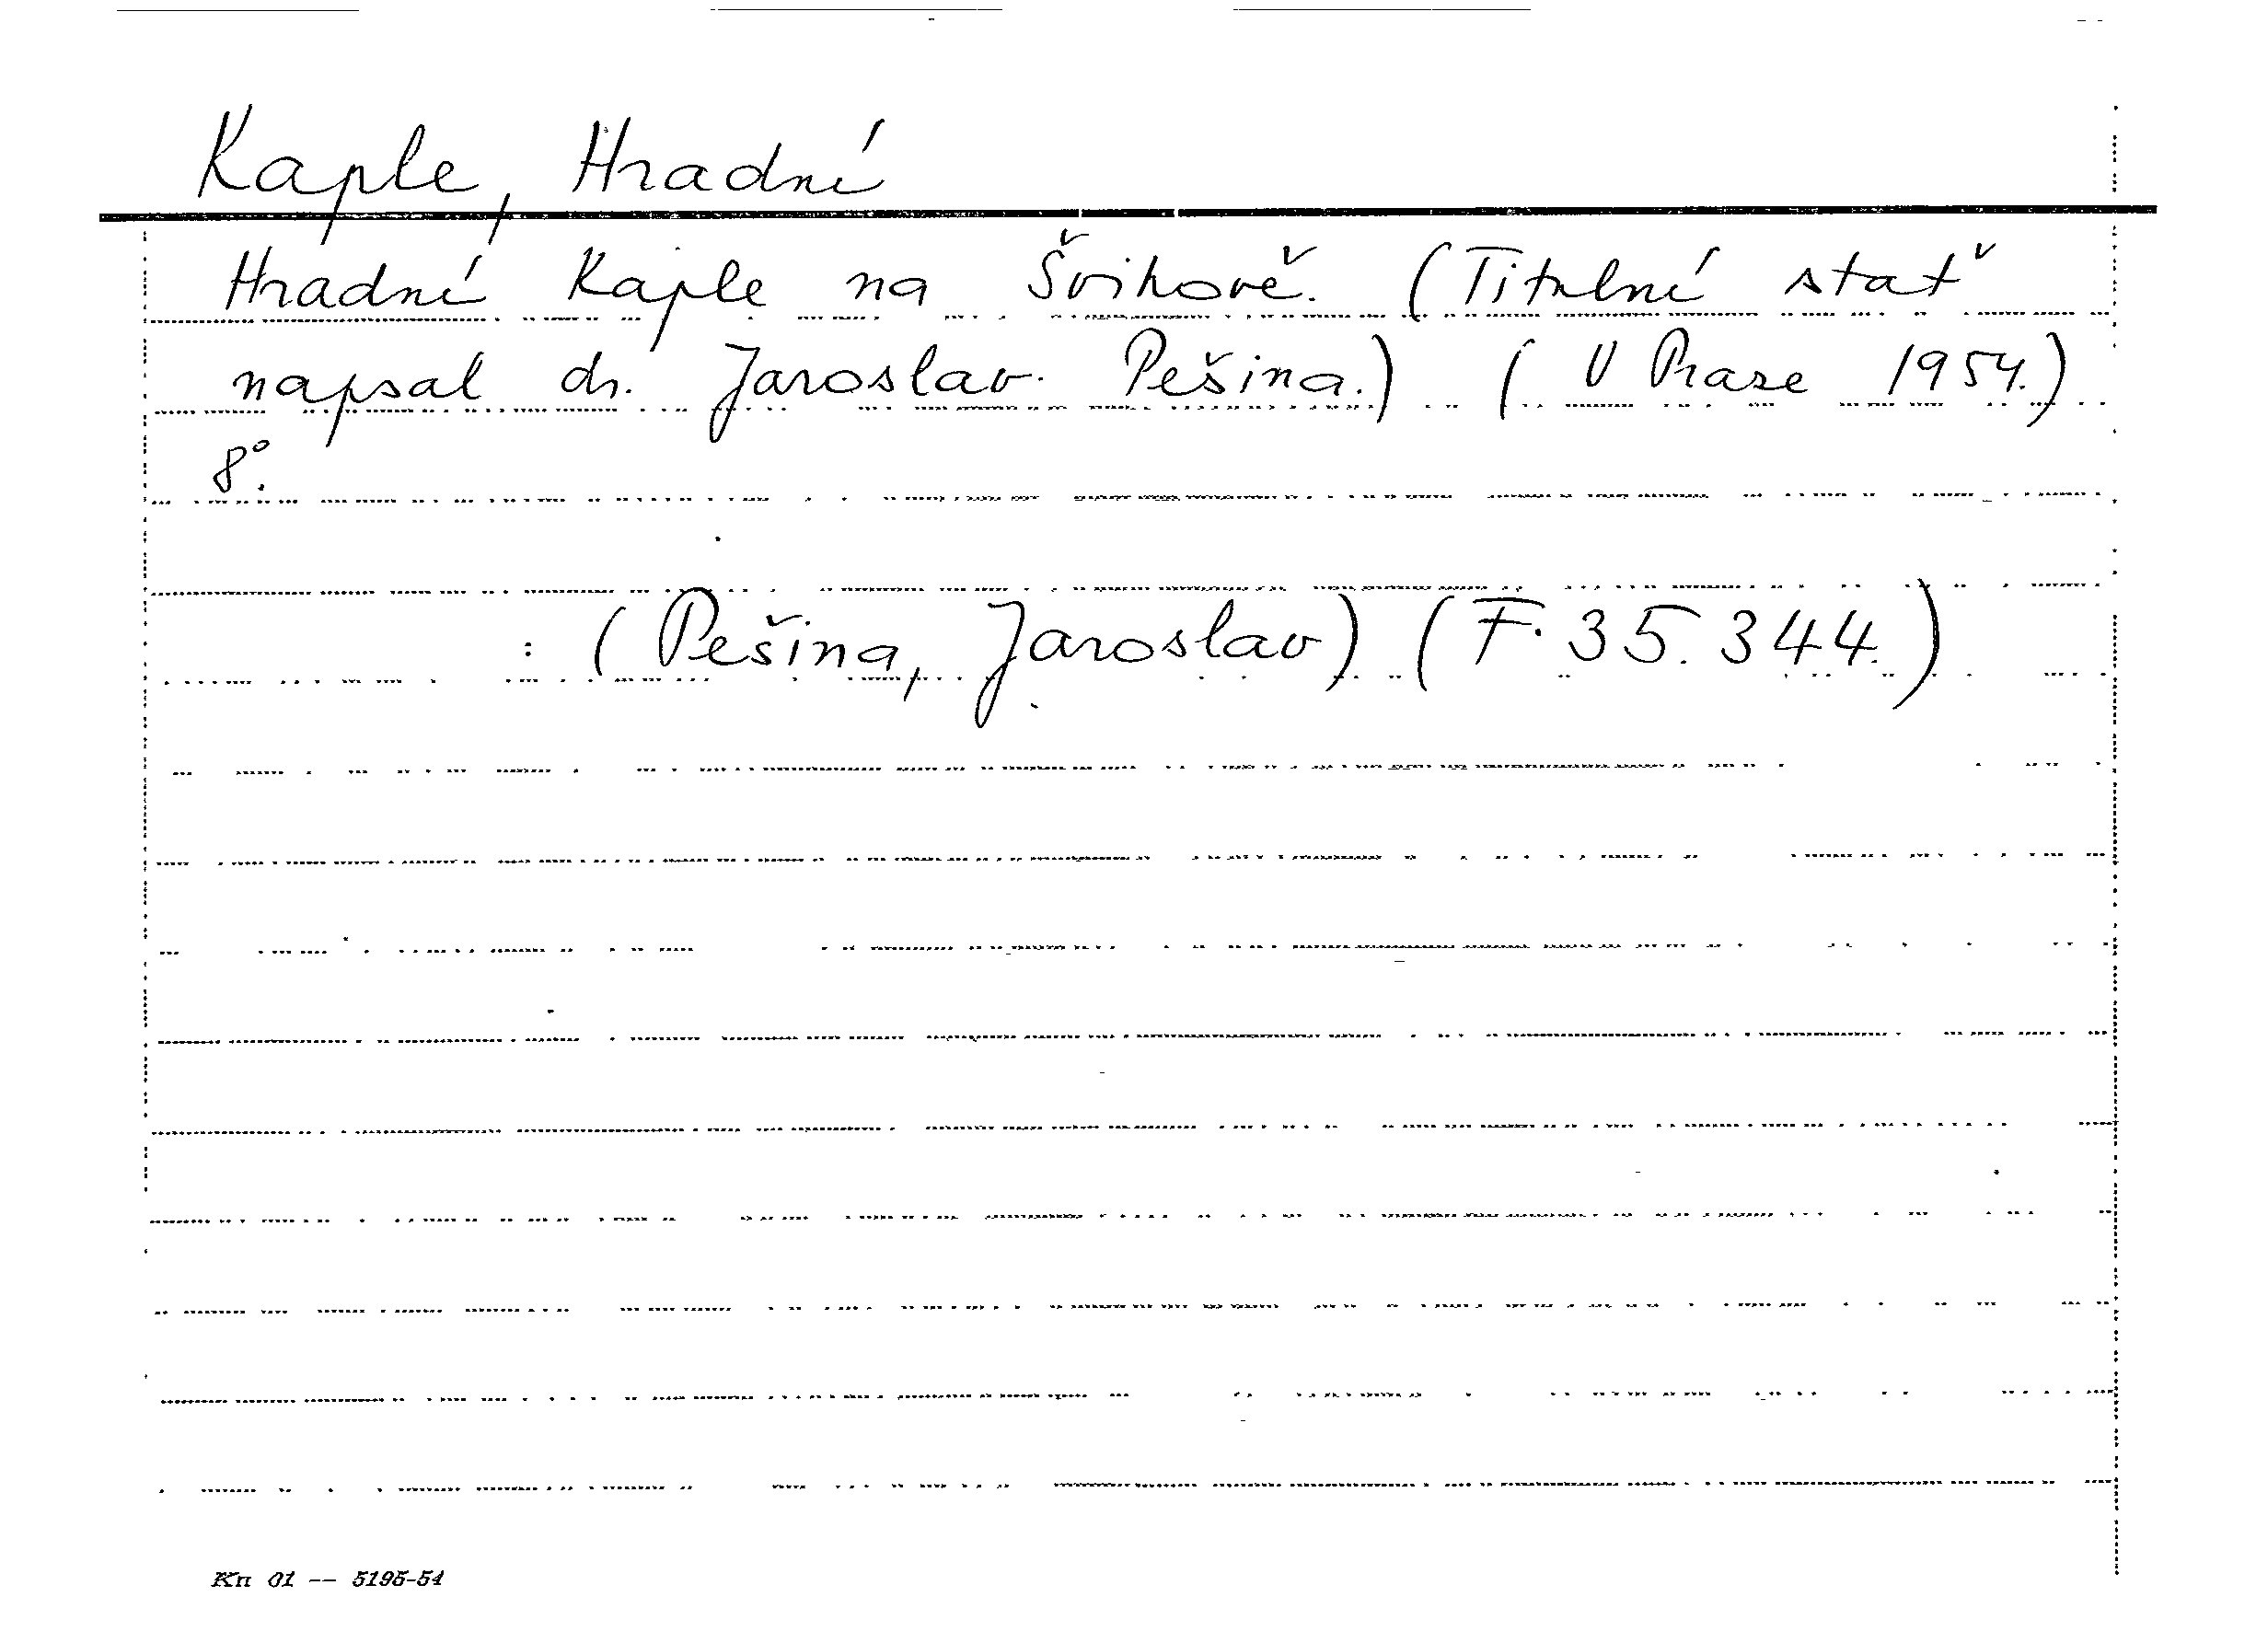 Kaple, Hradní
Hradní Kaple na Švihově. (Titulní stať
napsal dr. Jaroslav Pešina.) (V Praze 1954.)
8°.
: (Pešina, Jaroslav) (F. 35.344.)
Kn 01 -- 5195-54